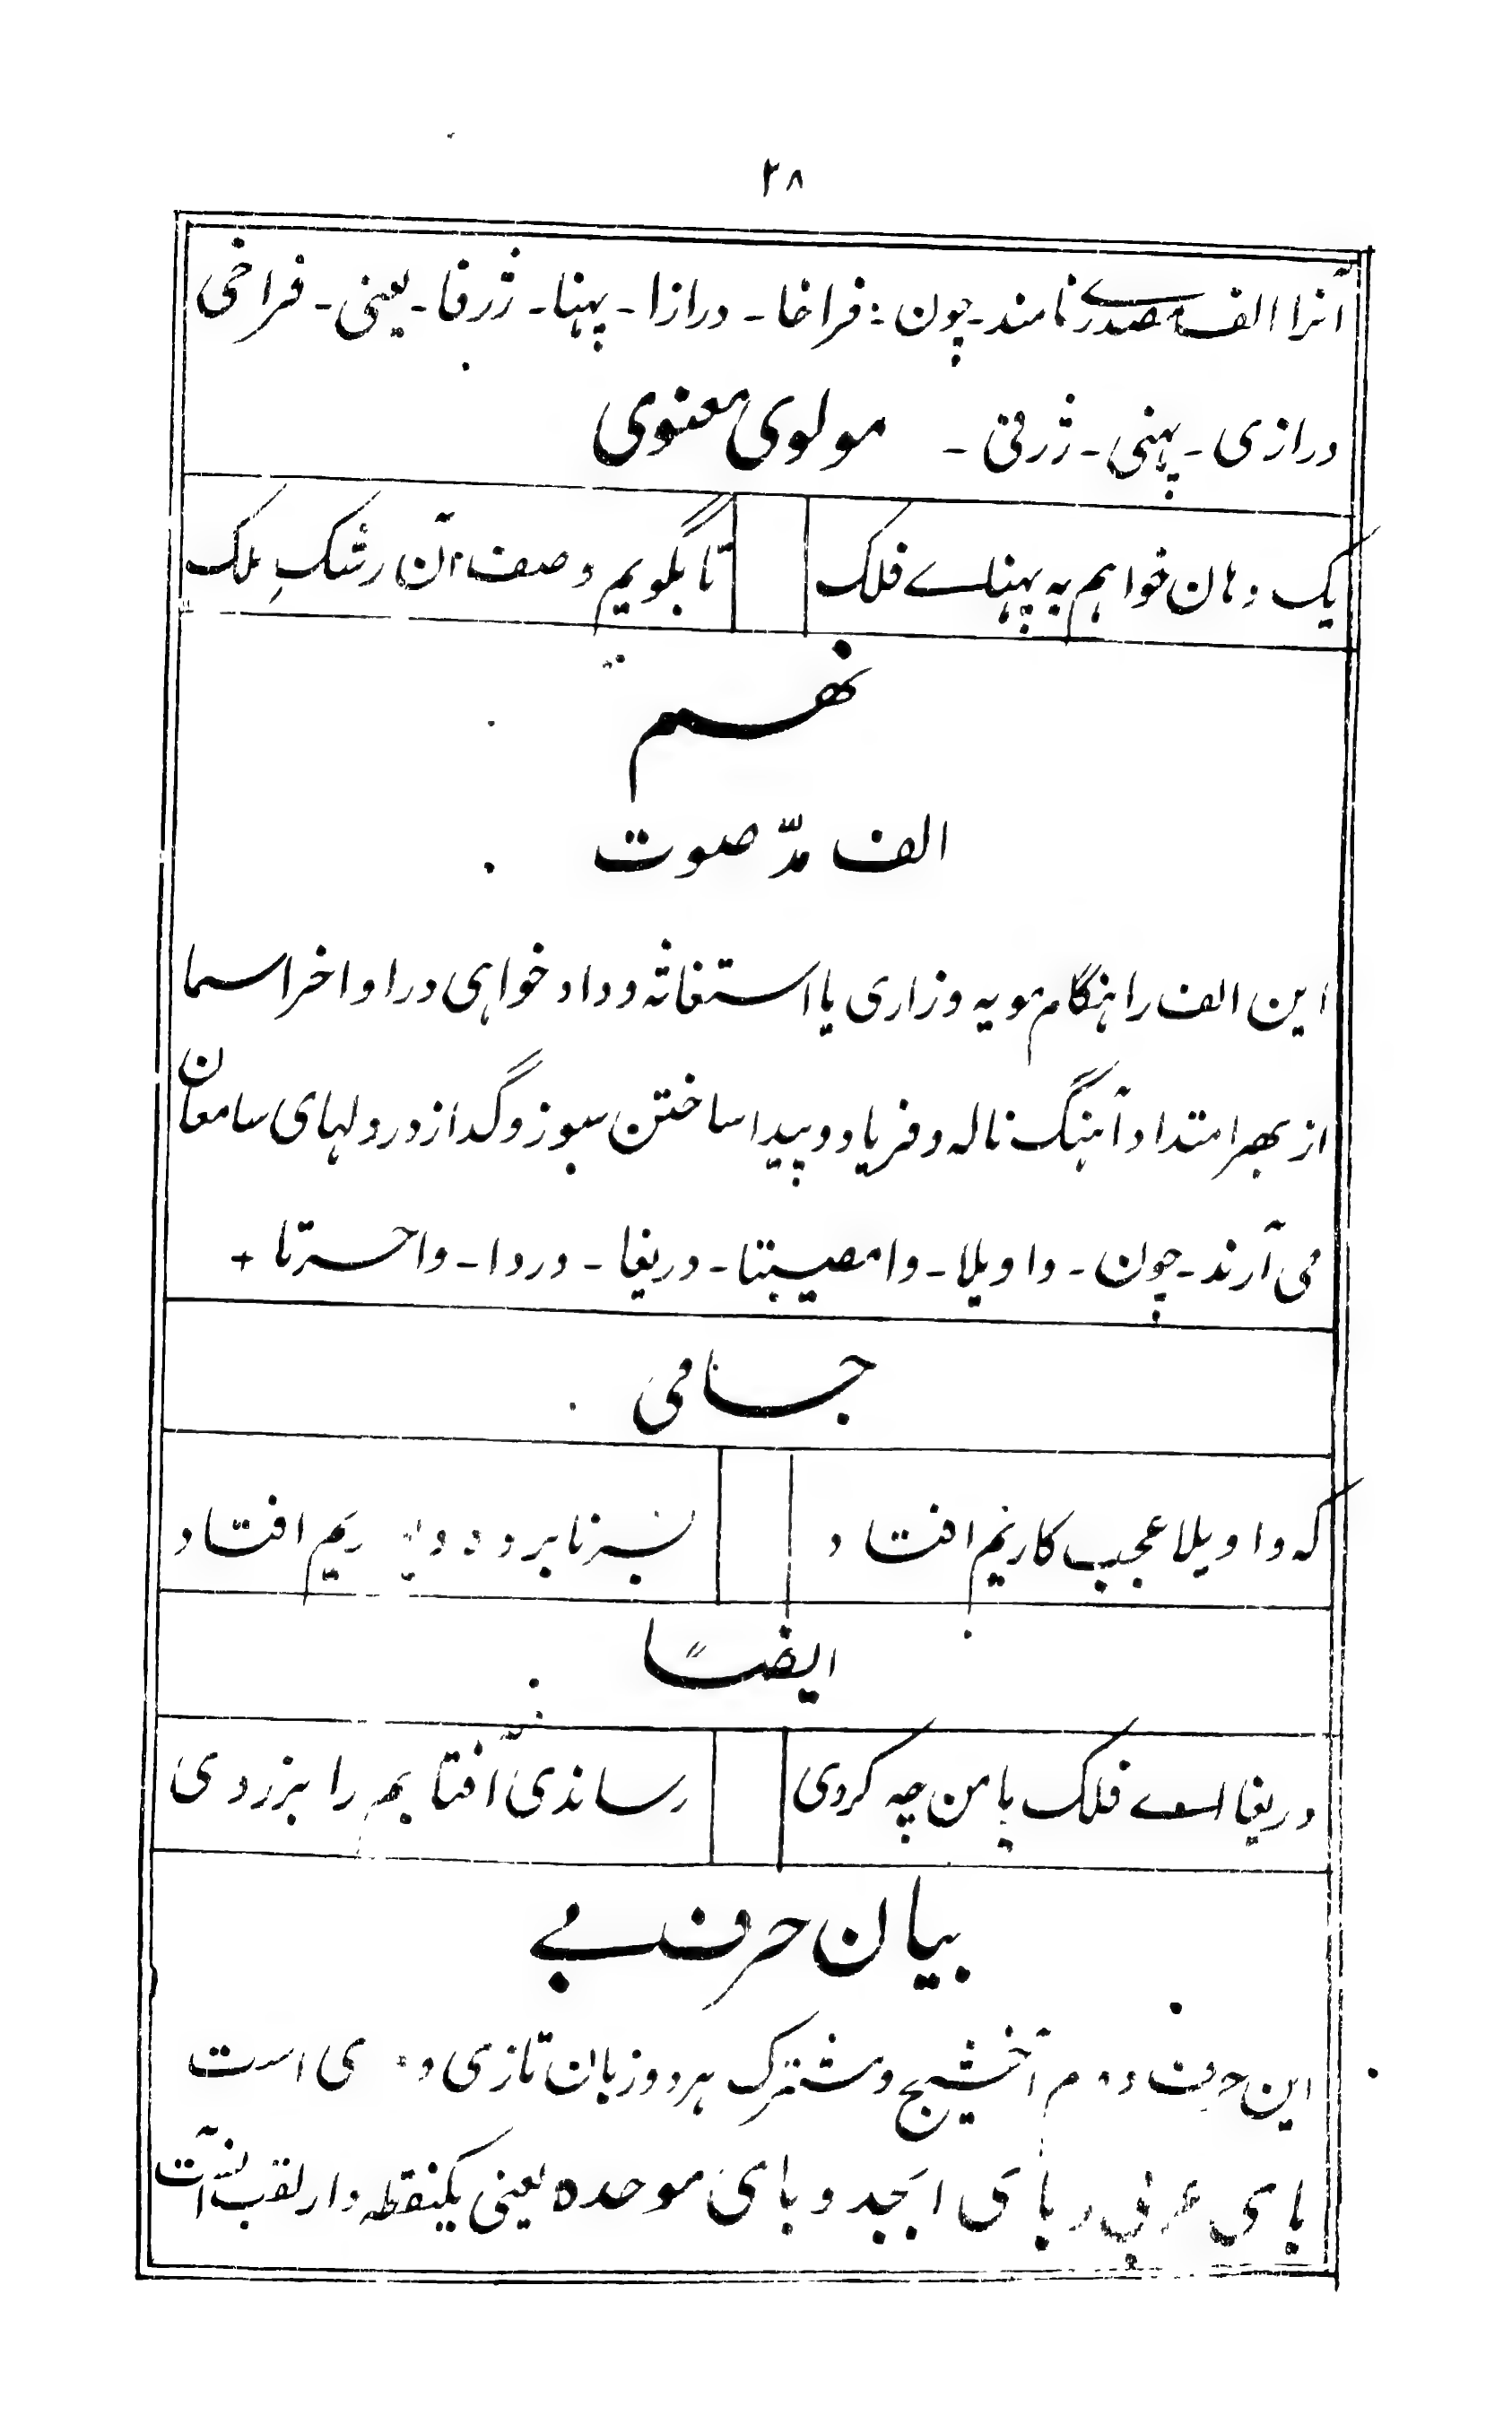 ۲۸
آنرا الف مصدرے نامند۔ چون: فراخا۔ درازا۔ پہنا۔ ژرفا۔ یعنی۔ فراخی
درازی۔ پہنی۔ ژرفی۔ مولوی معنوی
یک دہان خواہم بہ پہناے فلک تا بگویم وصف آن رشکِ ملک
نهم
الف مدّ صوت
این الف را ہنگام مویہ وزاری یا استغاثہ و داد خواہی در اواخر اسما
از بہر امتداد آہنگ نالہ و فریاد و پیدا ساختن سوز و گداز در دلہای سامعان
می آرند۔ چون۔ واویلا۔ وامصیبتا۔ دریغا۔ دردا۔ واحسرتا +
جامی
کہ واویلا عجب کاریم افتاد بسر نابرده افتاد
ایضاً
دریغا اے فلک با من چہ کردی رساندی آفتابم را بزردی
بیان حرف بے
این حرف آخشیج و مشترک ہر دو زبان تازی و است
بای عربی و بای ابجد و بای موحدہ یعنی یکنقطہ دار لقب آنست